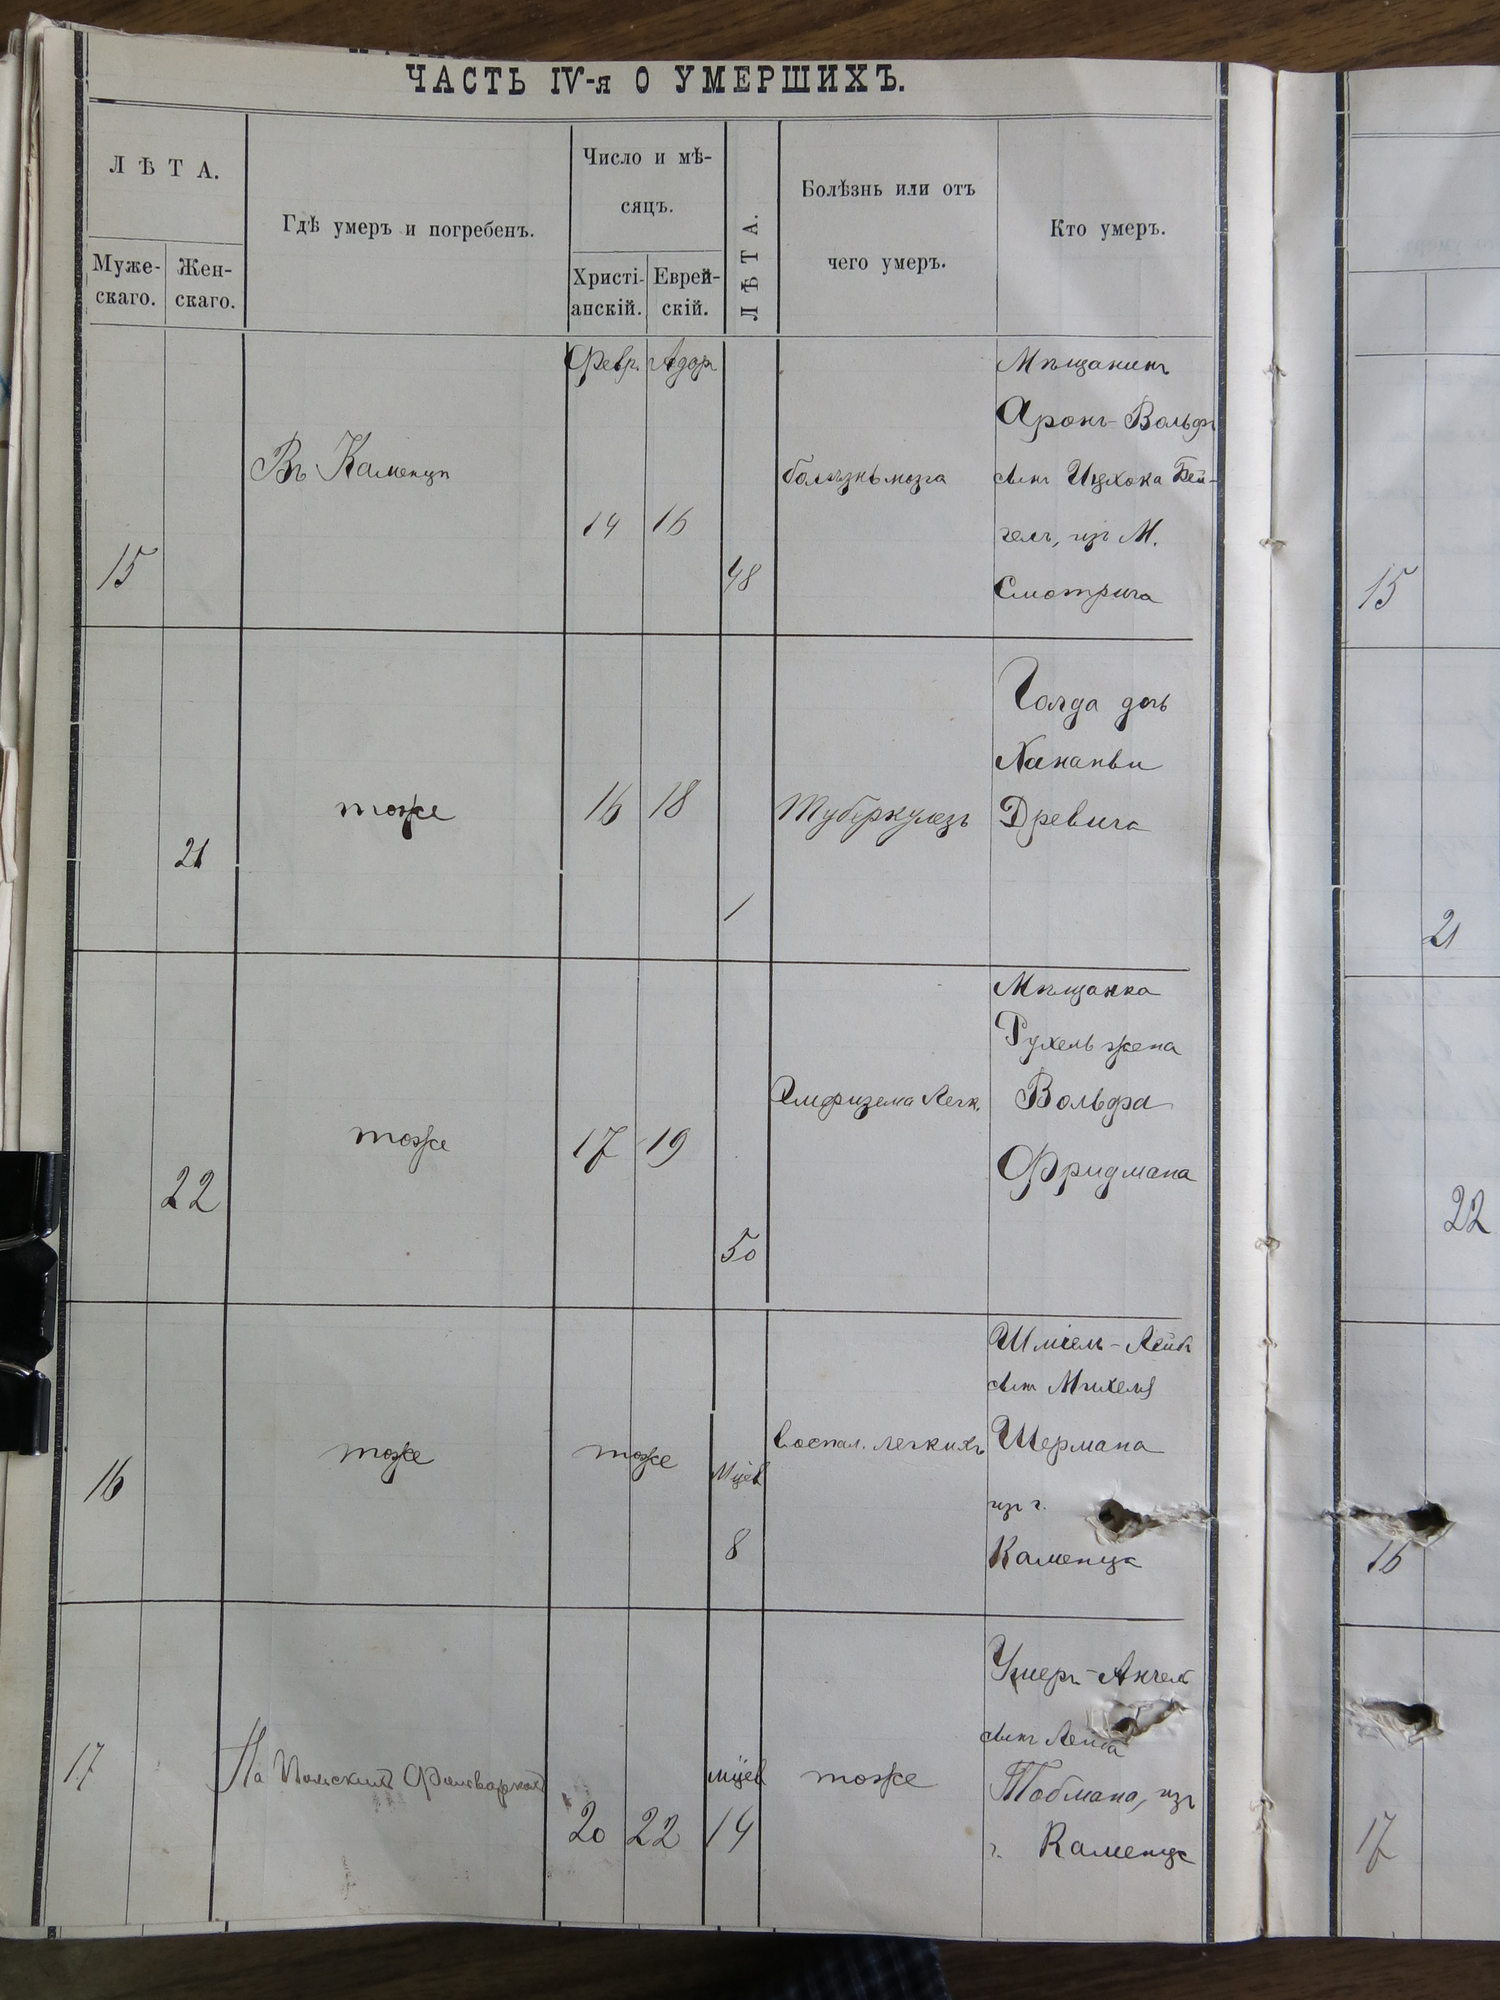 ЧАСТЬ IV-я О УМЕРШИХЪ.
ЛѢТА.
Муже-
скаго.
Жен-
скаго.
Гдѣ умеръ и погребенъ.
Число и мѣ-
сяцъ.
Христі-
анскій.
Еврей-
скій.
ЛѢТА.
Болѣзнь или отъ
чего умеръ.
Кто умеръ.
15
Въ Каменцѣ
Февр. Адаръ
14 16
48
болѣзнь мозга
Мѣщанинъ
Аронъ-Вольфъ
сынъ Ицхока Бей-
гель, изъ М.
Смотрича
15
21
тоже
16 18
1
Туберкулезъ
Голда дочь
Хананьи
Древича
21
22
тоже
17 19
50
Эмфизема Легк.
Мѣщанка
Рухель жена
Вольфа
Фридмана
22
16
тоже
тоже
Мцев
8
Воспал. легкихъ
Шмиель-Лейб
сынъ Михеля
Шермана
изъ г.
Каменца
16
17
На Польскихъ Фольваркахъ
20 22
мцев
14
тоже
Ушеръ-Анчель
сынъ Лейба
Тобмана, изъ
г. Каменца
17